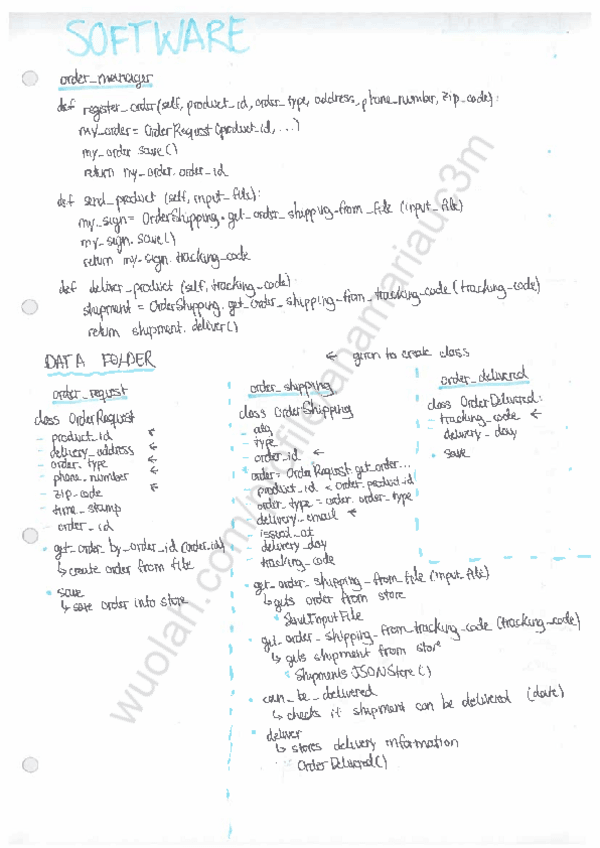 SOFTWARE
order_manager
def register_order(self, product_id, order_type, address, phone_number, zip_code):
my_order = OrderRequest(product_id, ...)
my_order save()
return my_order. order_id
def send_product (self, input_file):
my_sign = OrderShipping. get_order_shipping_from_file (input_file)
my_sign. save()
return my_sign. tracking_code
def deliver_product (self, tracking_code):
shipment = OrderShipping. get_order_shipping_from_tracking_code (tracking_code)
return shipment. deliver()
DATA FOLDER
← given to create class
order_request
class OrderRequest
- product_id ←
- delivery_address ←
- order_type ←
- phone_number ←
- zip_code ←
- time_stamp
- order_id
• get_order_by_order_id (order_id)
↳ create order from file
• save
↳ save order into store
order_shipping
class OrderShipping
- alg
- type
- order_id ←
order = OrderRequest. get_order...
product_id < order. product_id
order_type = order. order_type
- delivery_email ←
- issued_at
- delivery_day
- tracking_code
• get_order_shipping_from_file (input_file)
↳ gets order from store
• SendInputFile
• get_order_shipping_from_tracking_code (tracking_code)
↳ gets shipment from store
• ShipmentsJSONStore()
• can_be_delivered
↳ checks if shipment can be delivered (date)
• deliver
↳ stores delivery information
OrderDelivered()
order_delivered
class OrderDelivered:
- tracking_code ←
- delivery_day
• save
wuolah.com/profile/anamariauc3m